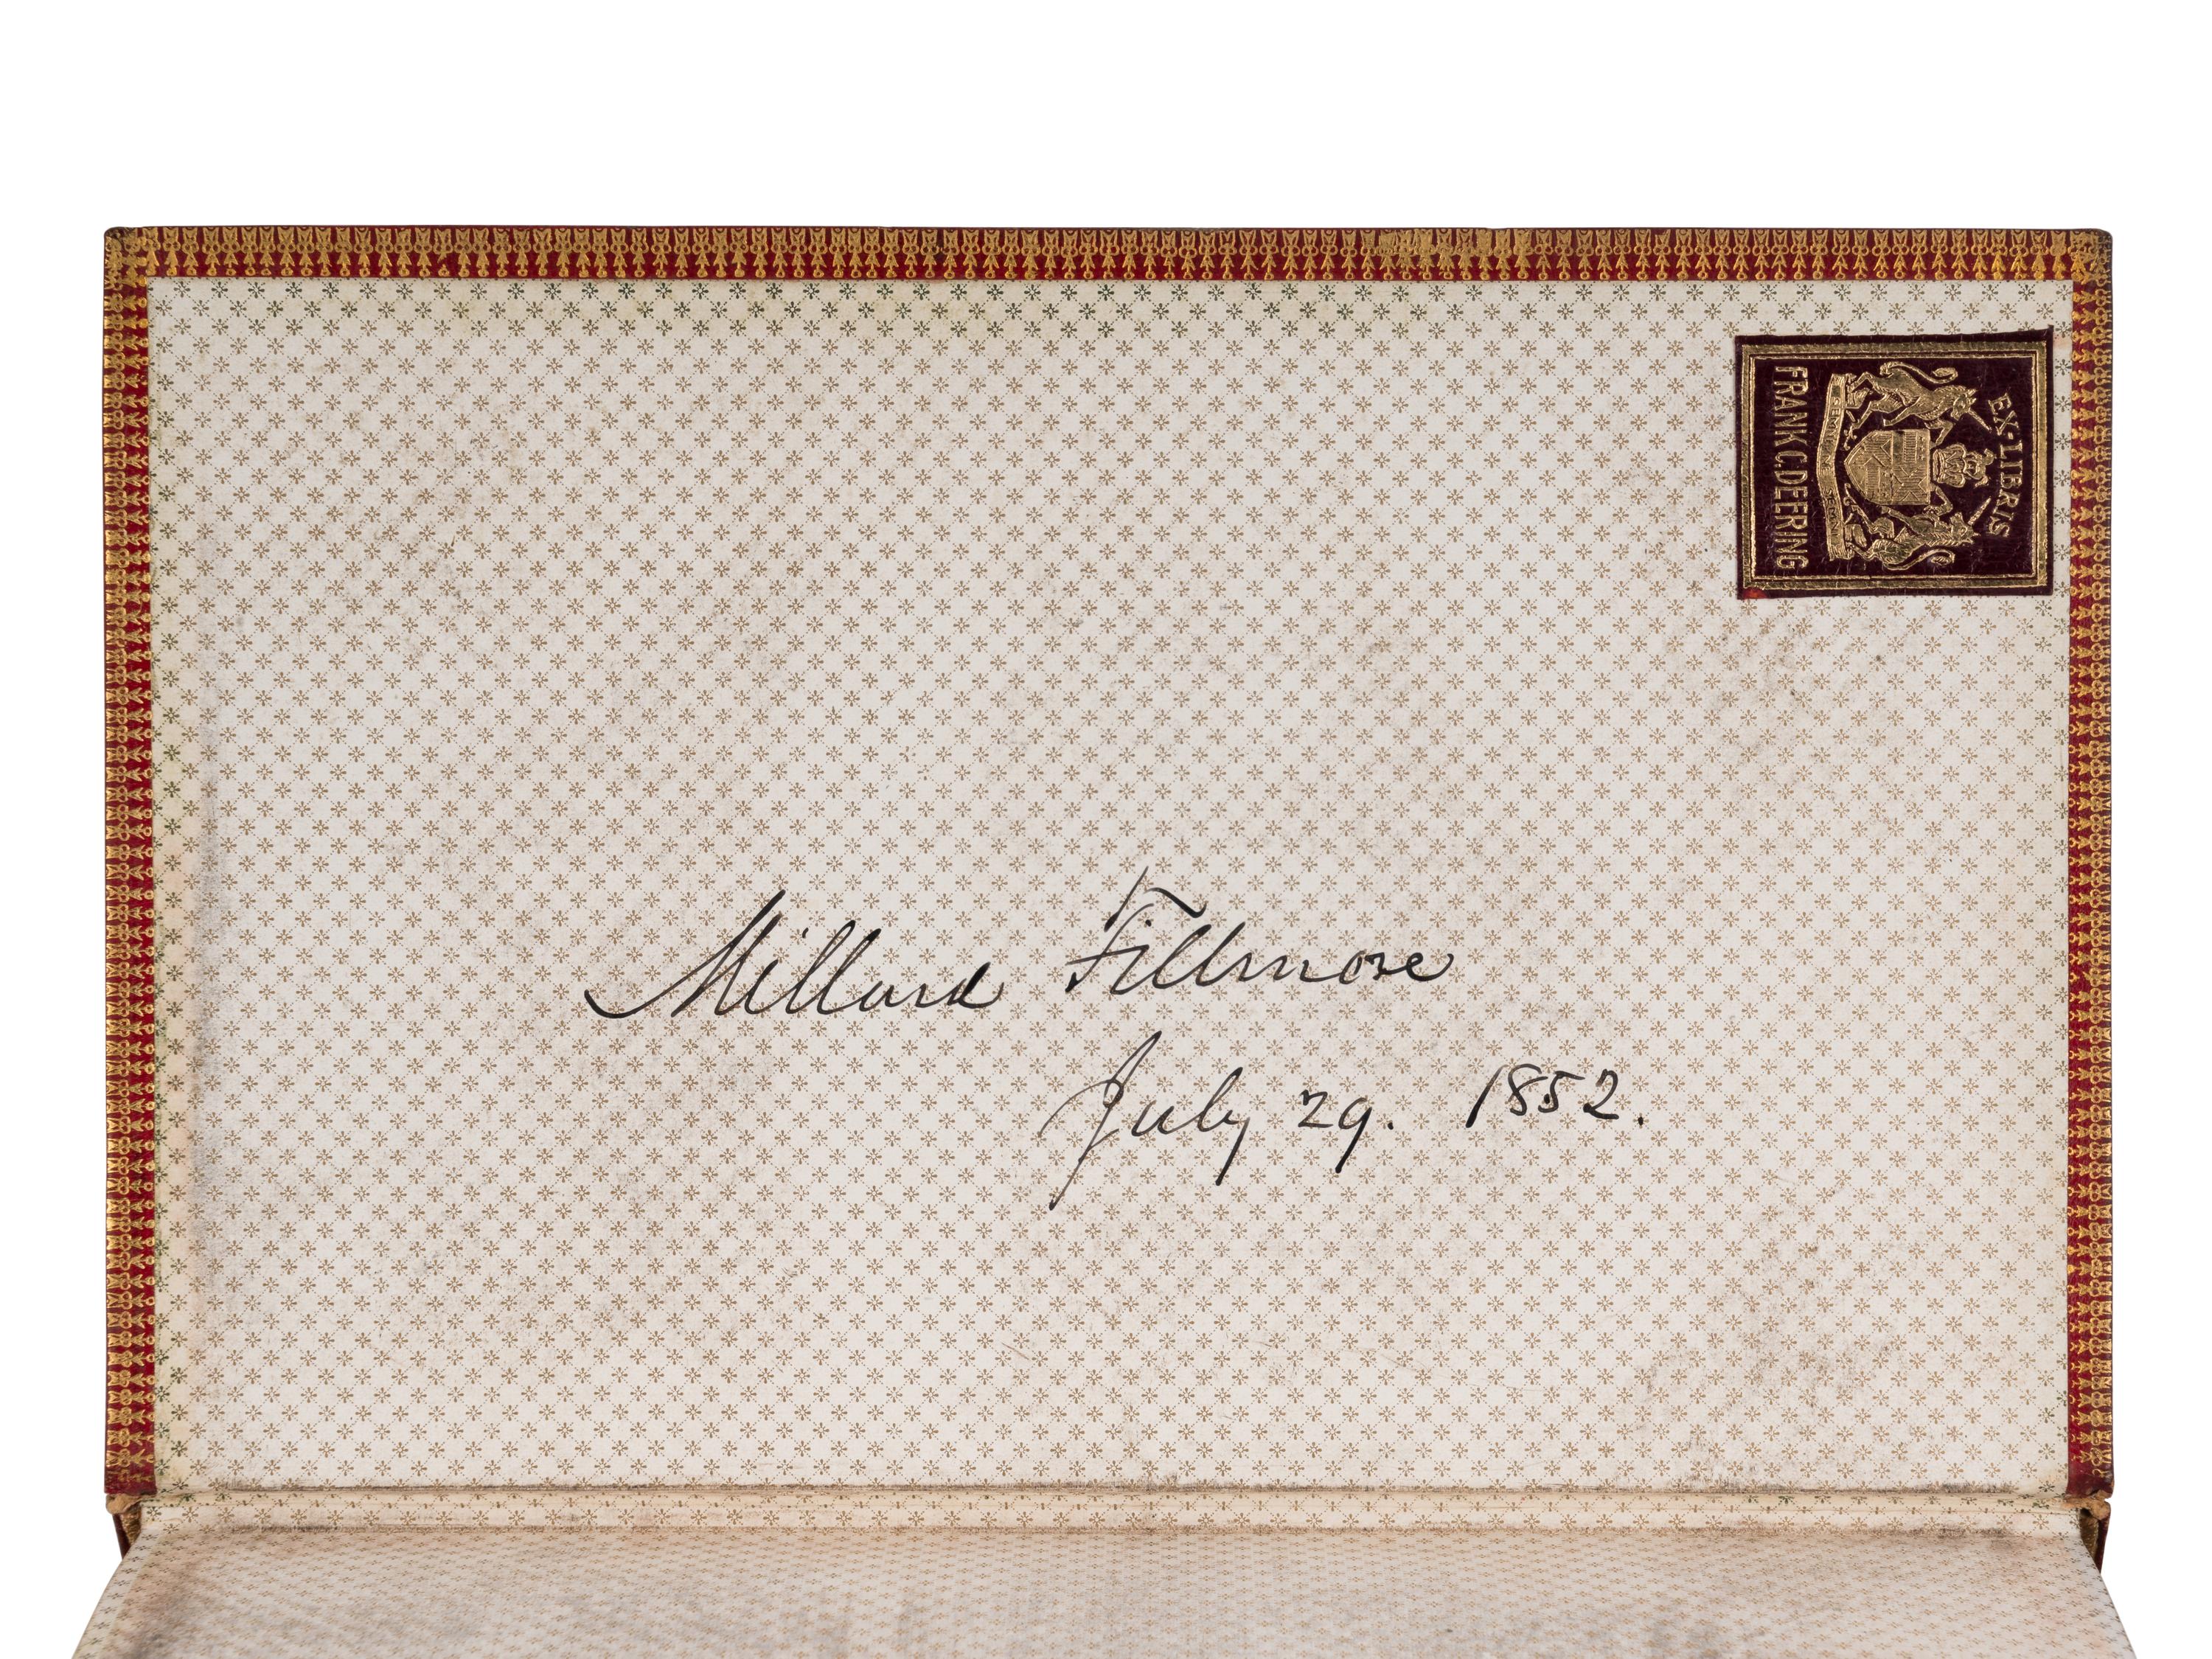 EX-LIBRIS
FRANK C. DEERING
Millard Fillmore
July 29. 1852.